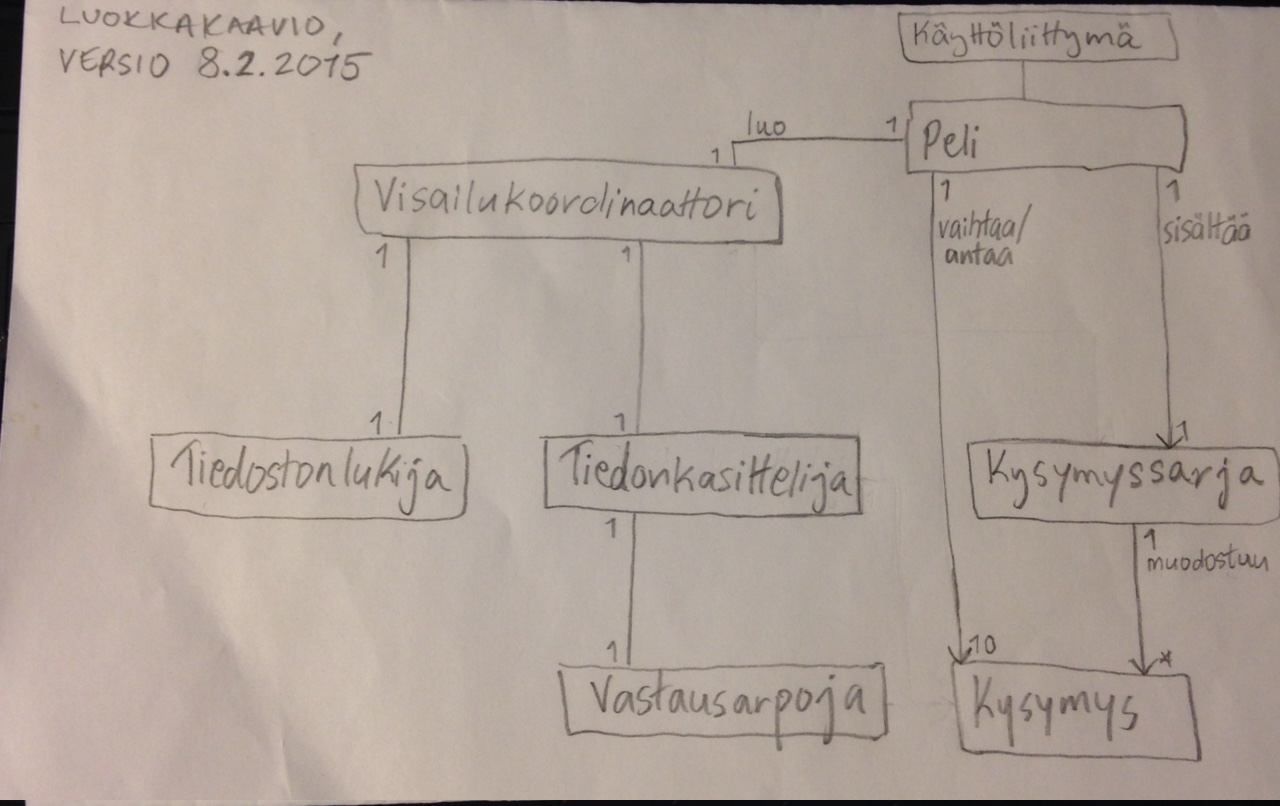 LUOKKAKAAVIO,
VERSIO 8.2.2015
Käyttöliittymä
luo
1
Peli
1
Visailukoordinaattori
1
vaihtaa/
antaa
1
sisältää
1
1
1
1
1
Tiedostonlukija
Tiedonkasittelija
Kysymyssarja
1
1
muodostuu
1
10
*
Vastausarpoja
Kysymys